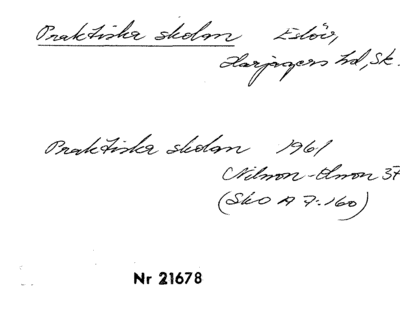 Praktiska skolan Eslöv,
Harjagers hd, Sk.
Praktiska skolan 1961
Nilsson-Olsson 37
(SkO A 7:160)
Nr 21678